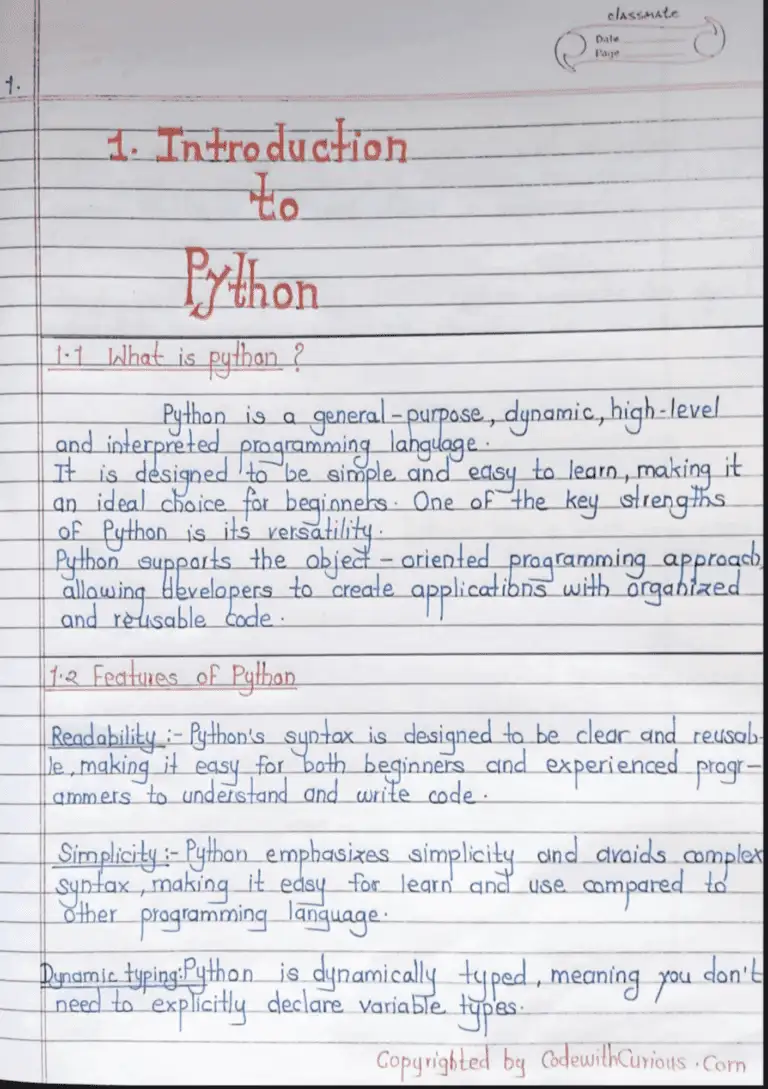 classmate
Date
Page
1.
1. Introduction
to
Python
1.1 What is python ?
Python is a general-purpose, dynamic, high-level
and interpreted programming language.
It is designed to be simple and easy to learn, making it
an ideal choice for beginners. One of the key strengths
of Python is its versatility.
Python supports the object-oriented programming approach,
allowing developers to create applications with organized
and reusable code.
1.2 Features of Python
Readability :- Python's syntax is designed to be clear and reusab-
le, making it easy for both beginners and experienced progr-
ammers to understand and write code.
Simplicity :- Python emphasizes simplicity and avoids complex
syntax, making it easy for learn and use compared to
other programming language.
Dynamic typing: Python is dynamically typed, meaning you don't
need to explicitly declare variable types.
Copyrighted by CodewithCurious.Com